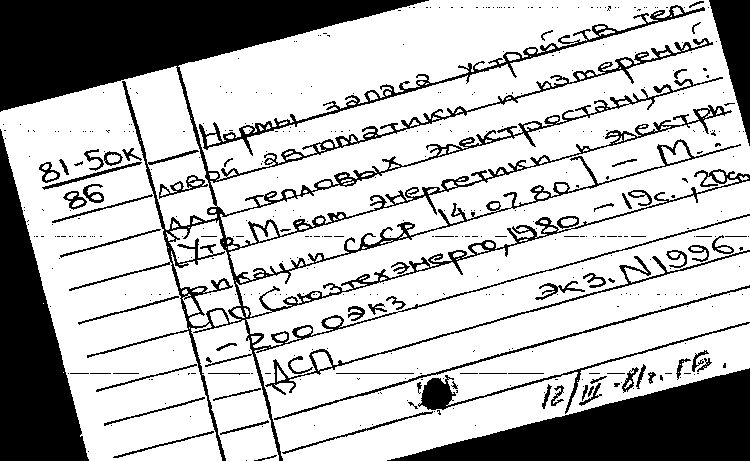 81-50к
86
Нормы запаса устройств теп-
ловой автоматики и измерений
для тепловых электростанций:
[Утв. М-вом энергетики и электри-
фикации СССР 14.07.80.]. – М.:
СПО Союзтехэнерго, 1980. – 19с.; 20см
. – 2000экз. экз. N1996.
ДСП.
12/III-81г. ГБ.